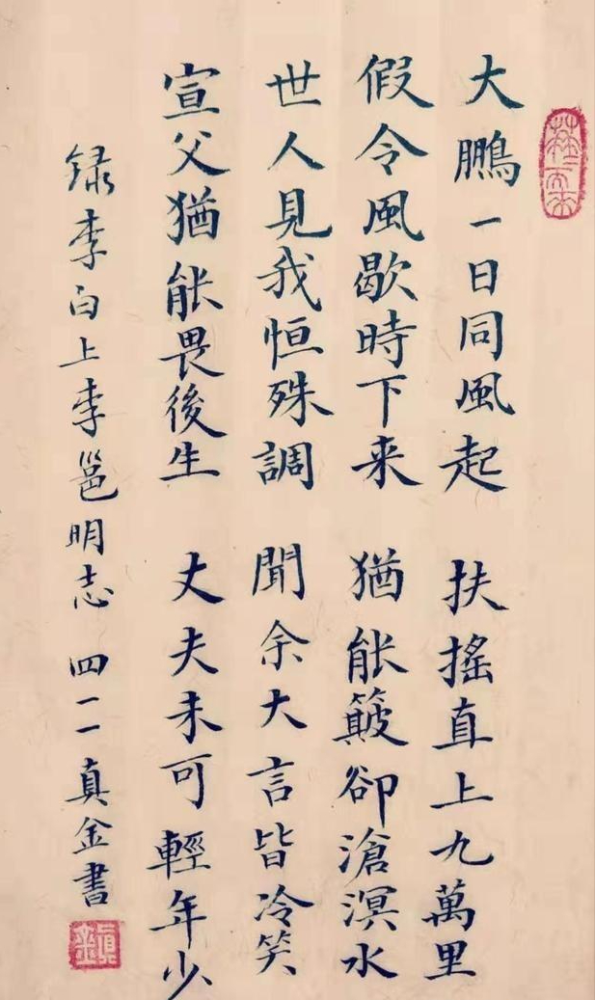 大鵬一日同風起 扶搖直上九萬里
假令風歇時下来 猶能簸卻滄溟水
世人見我恒殊調 聞余大言皆冷笑
宣父猶能畏後生 丈夫未可輕年少
録李白上李邕明志 四一一真金書